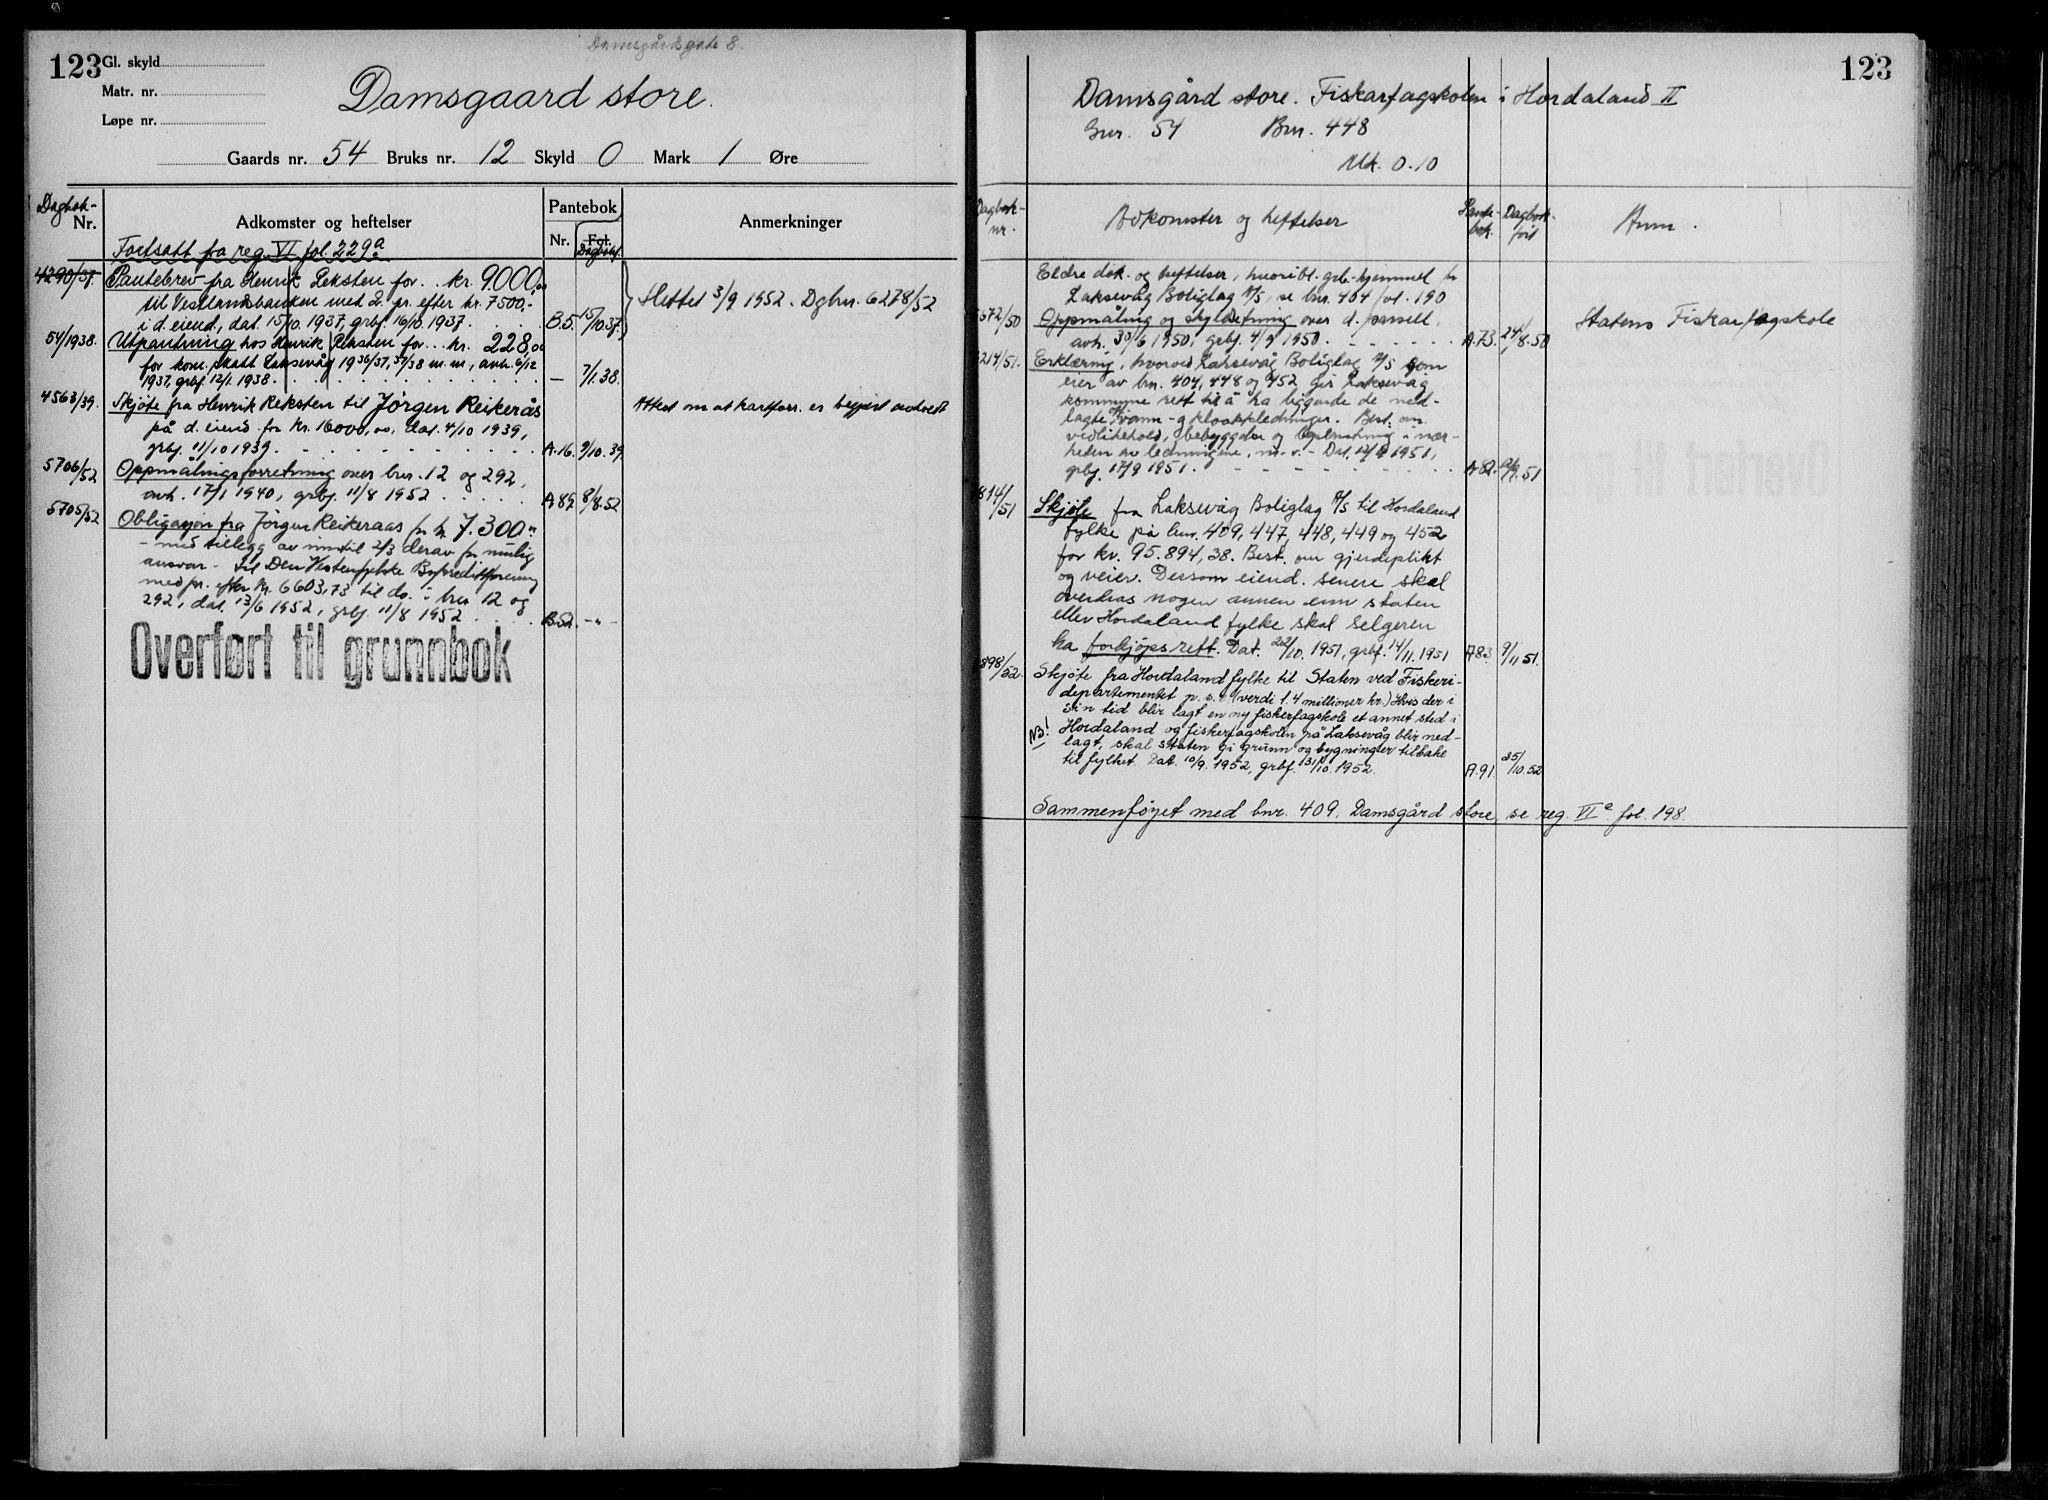 Damsgårdsgate 8.
123
Gl. skyld
Matr. nr.
Løpe nr.
Damsgaard store.
Gaards nr. 54 Bruks nr. 12 Skyld 0 Mark 1 Øre
Dagbok-
Nr.
Adkomster og heftelser
Pantebok
Nr.
Fol.
Dagbokf.
Anmerkninger
Fortsatt fra reg. VI fol. 229a
4290/37. Pantebrev fra Henrik Reksten for.. kr. 9000,00
til Vestlandsbanken med 2. pr. efter kr. 7500,-
i d. eiend., dat. 15/10. 1937, grbf. 16/10. 1937. B.5. 15/10 37.
Slettet 3/9 1952. Dgbnr. 6278/52
54/1938. Utpantning hos Henrik Reksten for... kr. 228,00
for kom. skatt Laksevåg 1936/37, 37/38 m. m., avh. 6/12
1937, grbf. 12/1. 1938. — 7/1.38.
4563/39. Skjøte fra Henrik Reksten til Jørgen Reikerås
på d. eiend. for kr. 16000,00, dat. 4/10 1939,
grbf. 11/10 1939. A.16. 9/10.39.
Attest om at kartforr. er begjært avholdt
5706/52 Oppmålingsforretning over bnr. 12 og 292,
avh. 17/1 1940, grbf. 11/8 1952. A89. 8/8.52
5705/52 Obligasjon fra Jørgen Reikeraas for kr 7.300,-
- med tillegg av inntil 2/3 derav for mulig
ansvar - til Den Vestenfjelske Bykreditforening
med pr. efter kr. 6603,73 til do. i bnr 12 og
292, dat. 13/6 1952, grbf. 11/8 1952. B.52. -"-
Overført til grunnbok
123
Damsgård store. Fiskarfagskolen i Hordaland II
Gnr. 54 Bnr. 448
Mk. 0.10
Dagbok-
nr.
Adkomster og heftelser
Pante-
bok.
Dagbok-
ført
Anm.
Eldre dok. og heftelser, hvoribl. grb.-hjemmel for
Laksevåg Boliglag A/S, se bnr. 404 fol. 190
572/50 Oppmåling og skylddeling over d. parsell,
avh. 30/6 1950, grbf. 4/9 1950. A.73. 24/8.50
Statens Fiskarfagskole
214/51. Erklæring, hvorved Laksevåg Boliglag A/S som
eier av bnr. 404, 448 og 452 gir Laksevåg
kommune rett til å ha liggende de ned-
lagte vann- og kloakkledninger. Best. om
vedlikehold, bebyggelse og beplantning i nær-
heten av ledningene, m. v. - Dat. 1951,
grbf. 17/9 1951. A82. 51
814/51 Skjøte fra Laksevåg Boliglag A/S til Hordaland
fylke på bnr. 409, 447, 448, 449 og 452
for kr. 95.894,38. Best. om gjerdeplikt
og veier. Dersom eiend. senere skal
overdras nogen annen enn staten
eller Hordaland fylke skal selgeren
ha forkjøpsrett. Dat. 22/10. 1951, grbf. 14/11. 1951 A83. 9/11 51.
898/52. Skjøte fra Hordaland fylke til Staten ved Fiskeri-
departementet p. s. t (verdi 1.4 millioner kr.) Hvis der i
sin tid blir lagt en ny fiskerfagskole et annet sted i
NB! Hordaland og fiskerfagskolen på Laksevåg blir ned-
lagt, skal staten gi grunn og bygninger tilbake
til fylket. Dat. 10/9. 1952, grbf. 31/10. 1952. A.91. 25/10.52
Sammenføyet med bnr. 409, Damsgård store, se reg. VIa fol. 198.